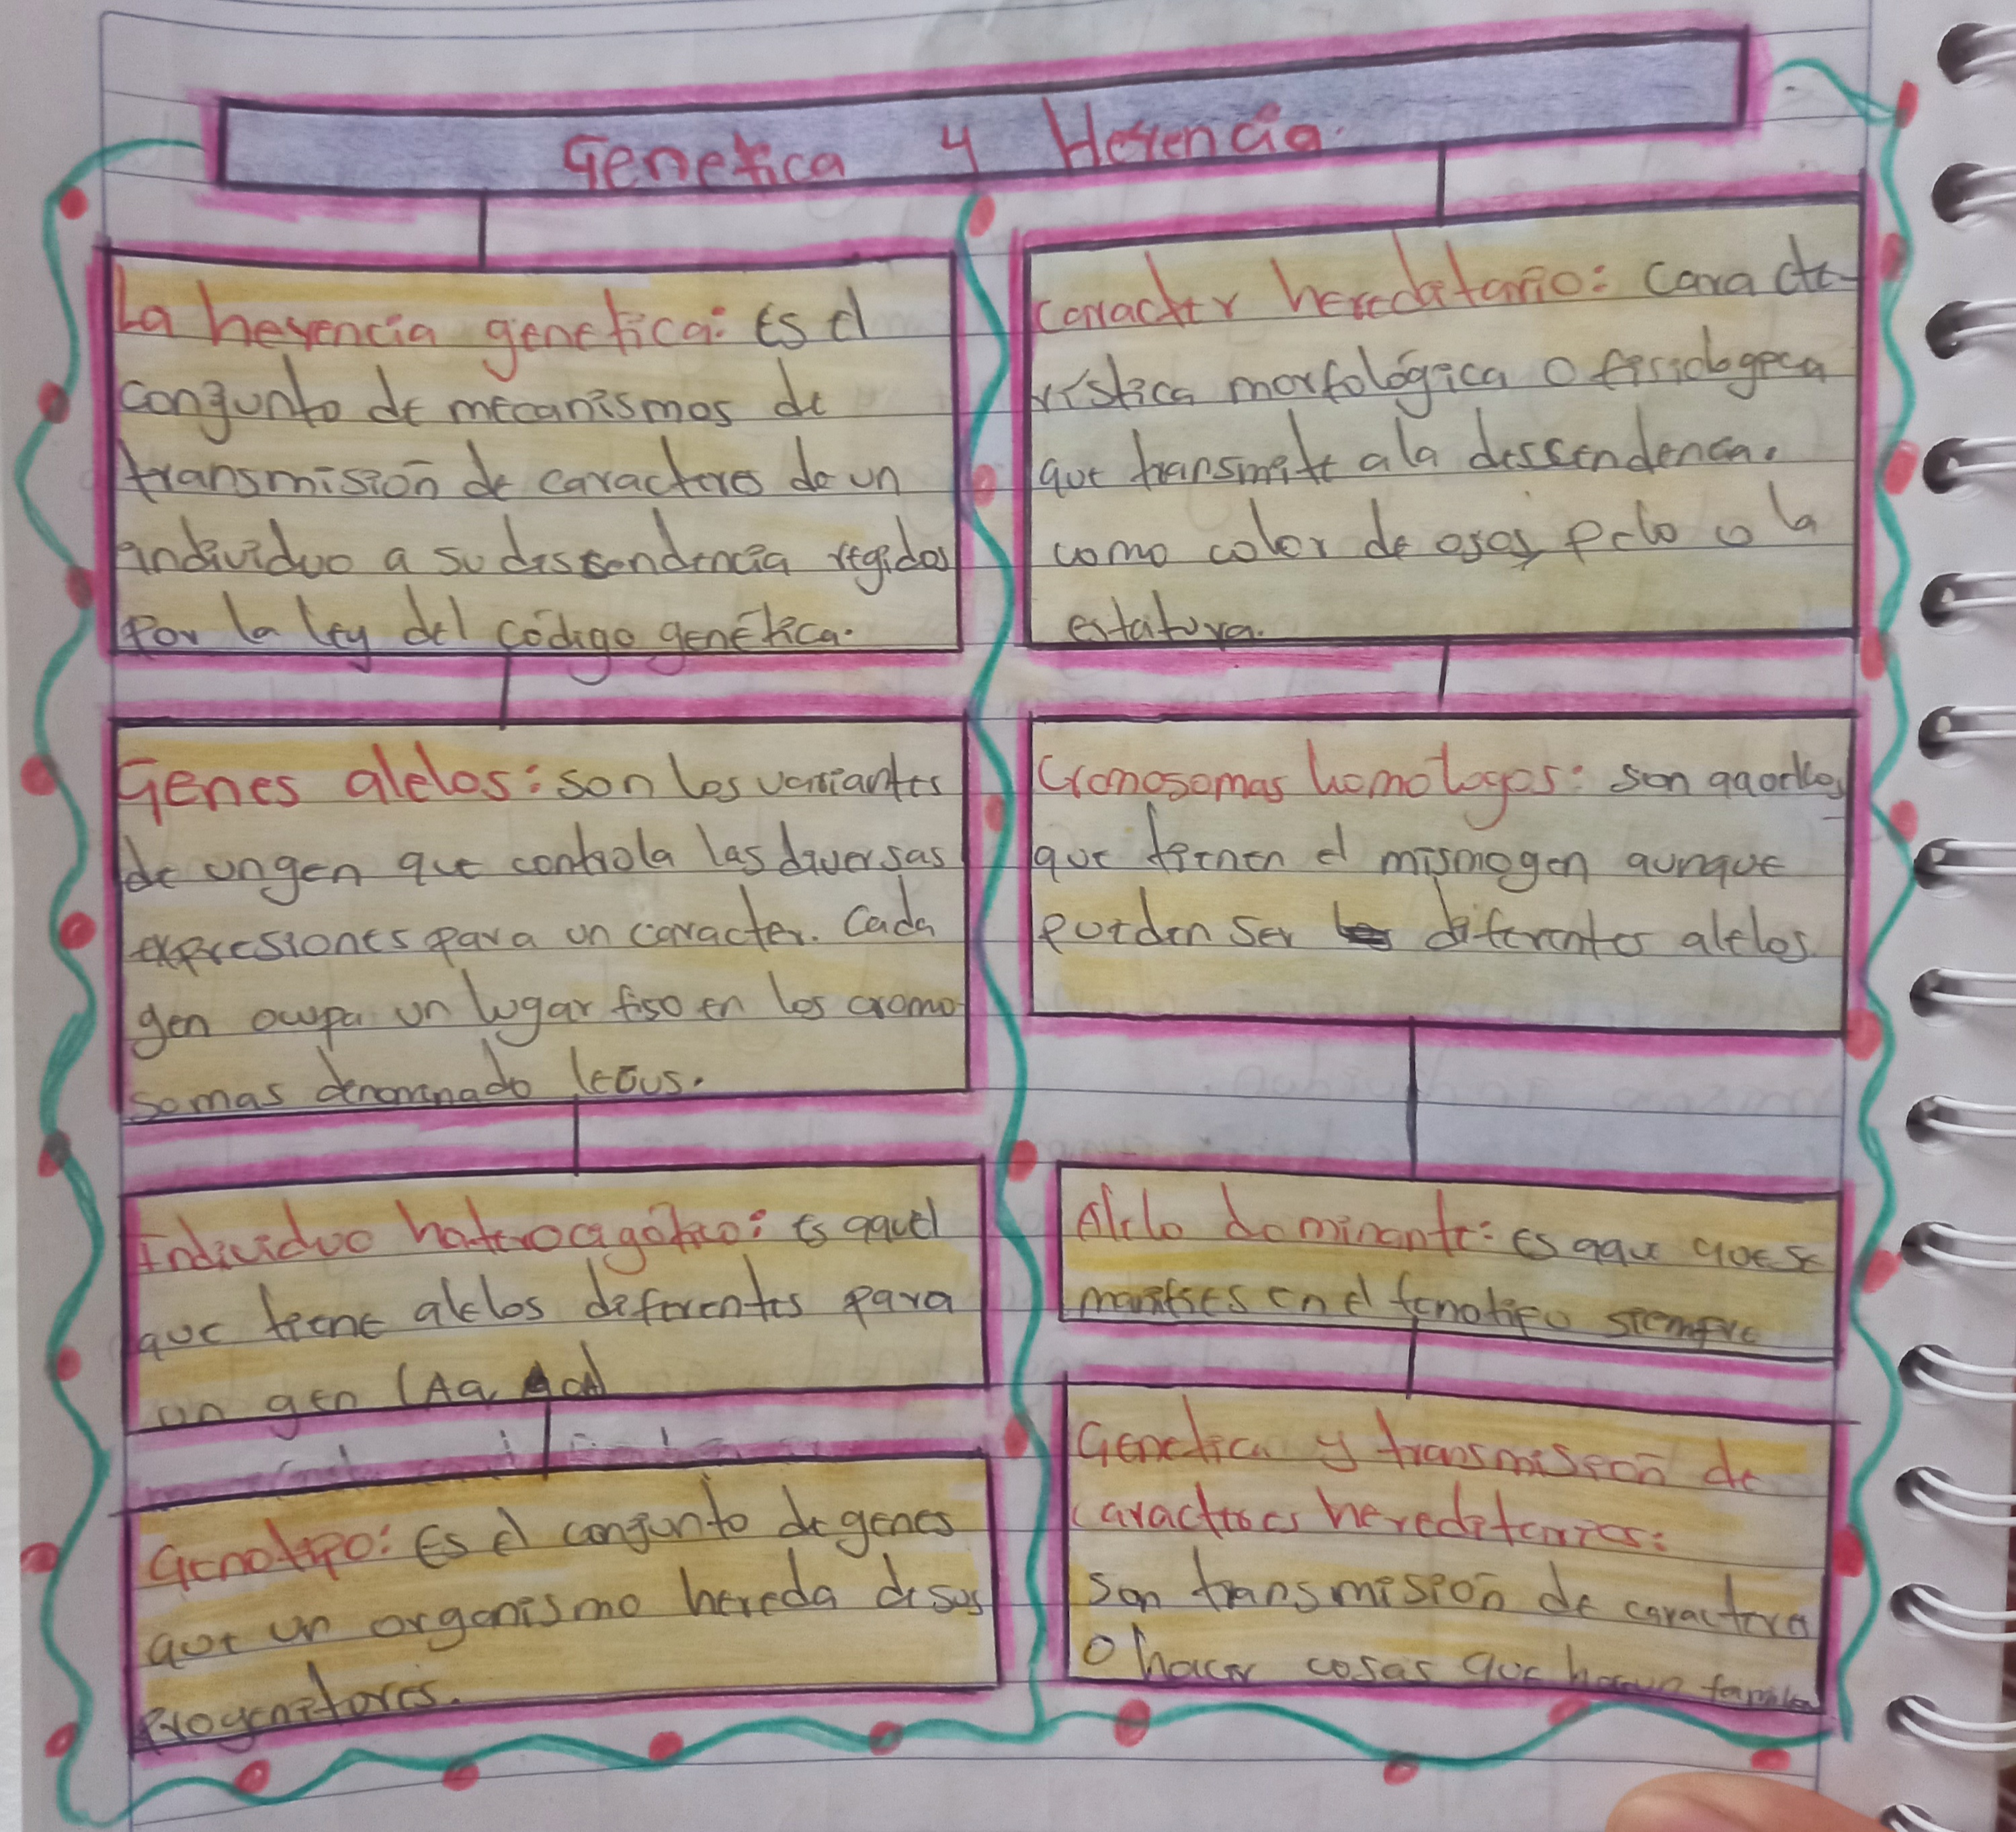 Genetica y Herencia.
La herencia genetica: Es el
conjunto de mecanismos de
transmisión de caracteres de un
individuo a su descendencia regidos
Por la ley del código genética.
Genes alelos: son los variantes
de ungen que controla las diversas
expresiones para un caracter. Cada
gen ocupa un lugar fiso en los cromo
somas denominado
Individuo es aquel
que tiene alelos diferentes para
un gen (Aa,
Genotipo: Es el conjunto de genes
que un organismo hereda de sus
Progenitores.
Caracter heredatario: caracte-
rística morfológica o fisiologica
que transmite ala descendencia.
como color de ojos, pelo o la
estatura.
Cromosomas homologos: son aquellos
que tienen el mismogen aunque
pueden ser diferentes alelos.
Alelo dominante: es aque que se
en el fenotipo siempre
Genetica y transmisión de
caracteres
son transmisión de caracteres
o hacer cosas que